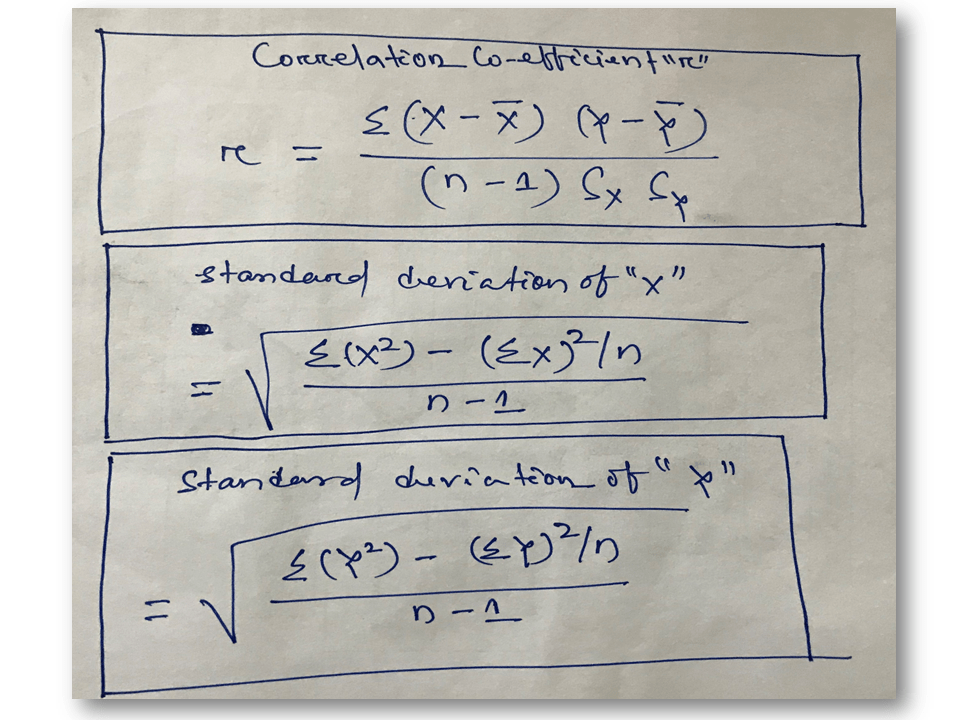 Correlation Co-efficient "r"
r = Σ(X - x̄) (Y - ȳ) / (n - 1) Sx Sy
standard deviation of "x"
= √((Σ(X²) - (Σx)²/n) / (n - 1))
Standard deviation of "y"
= √((Σ(Y²) - (Σy)²/n) / (n - 1))